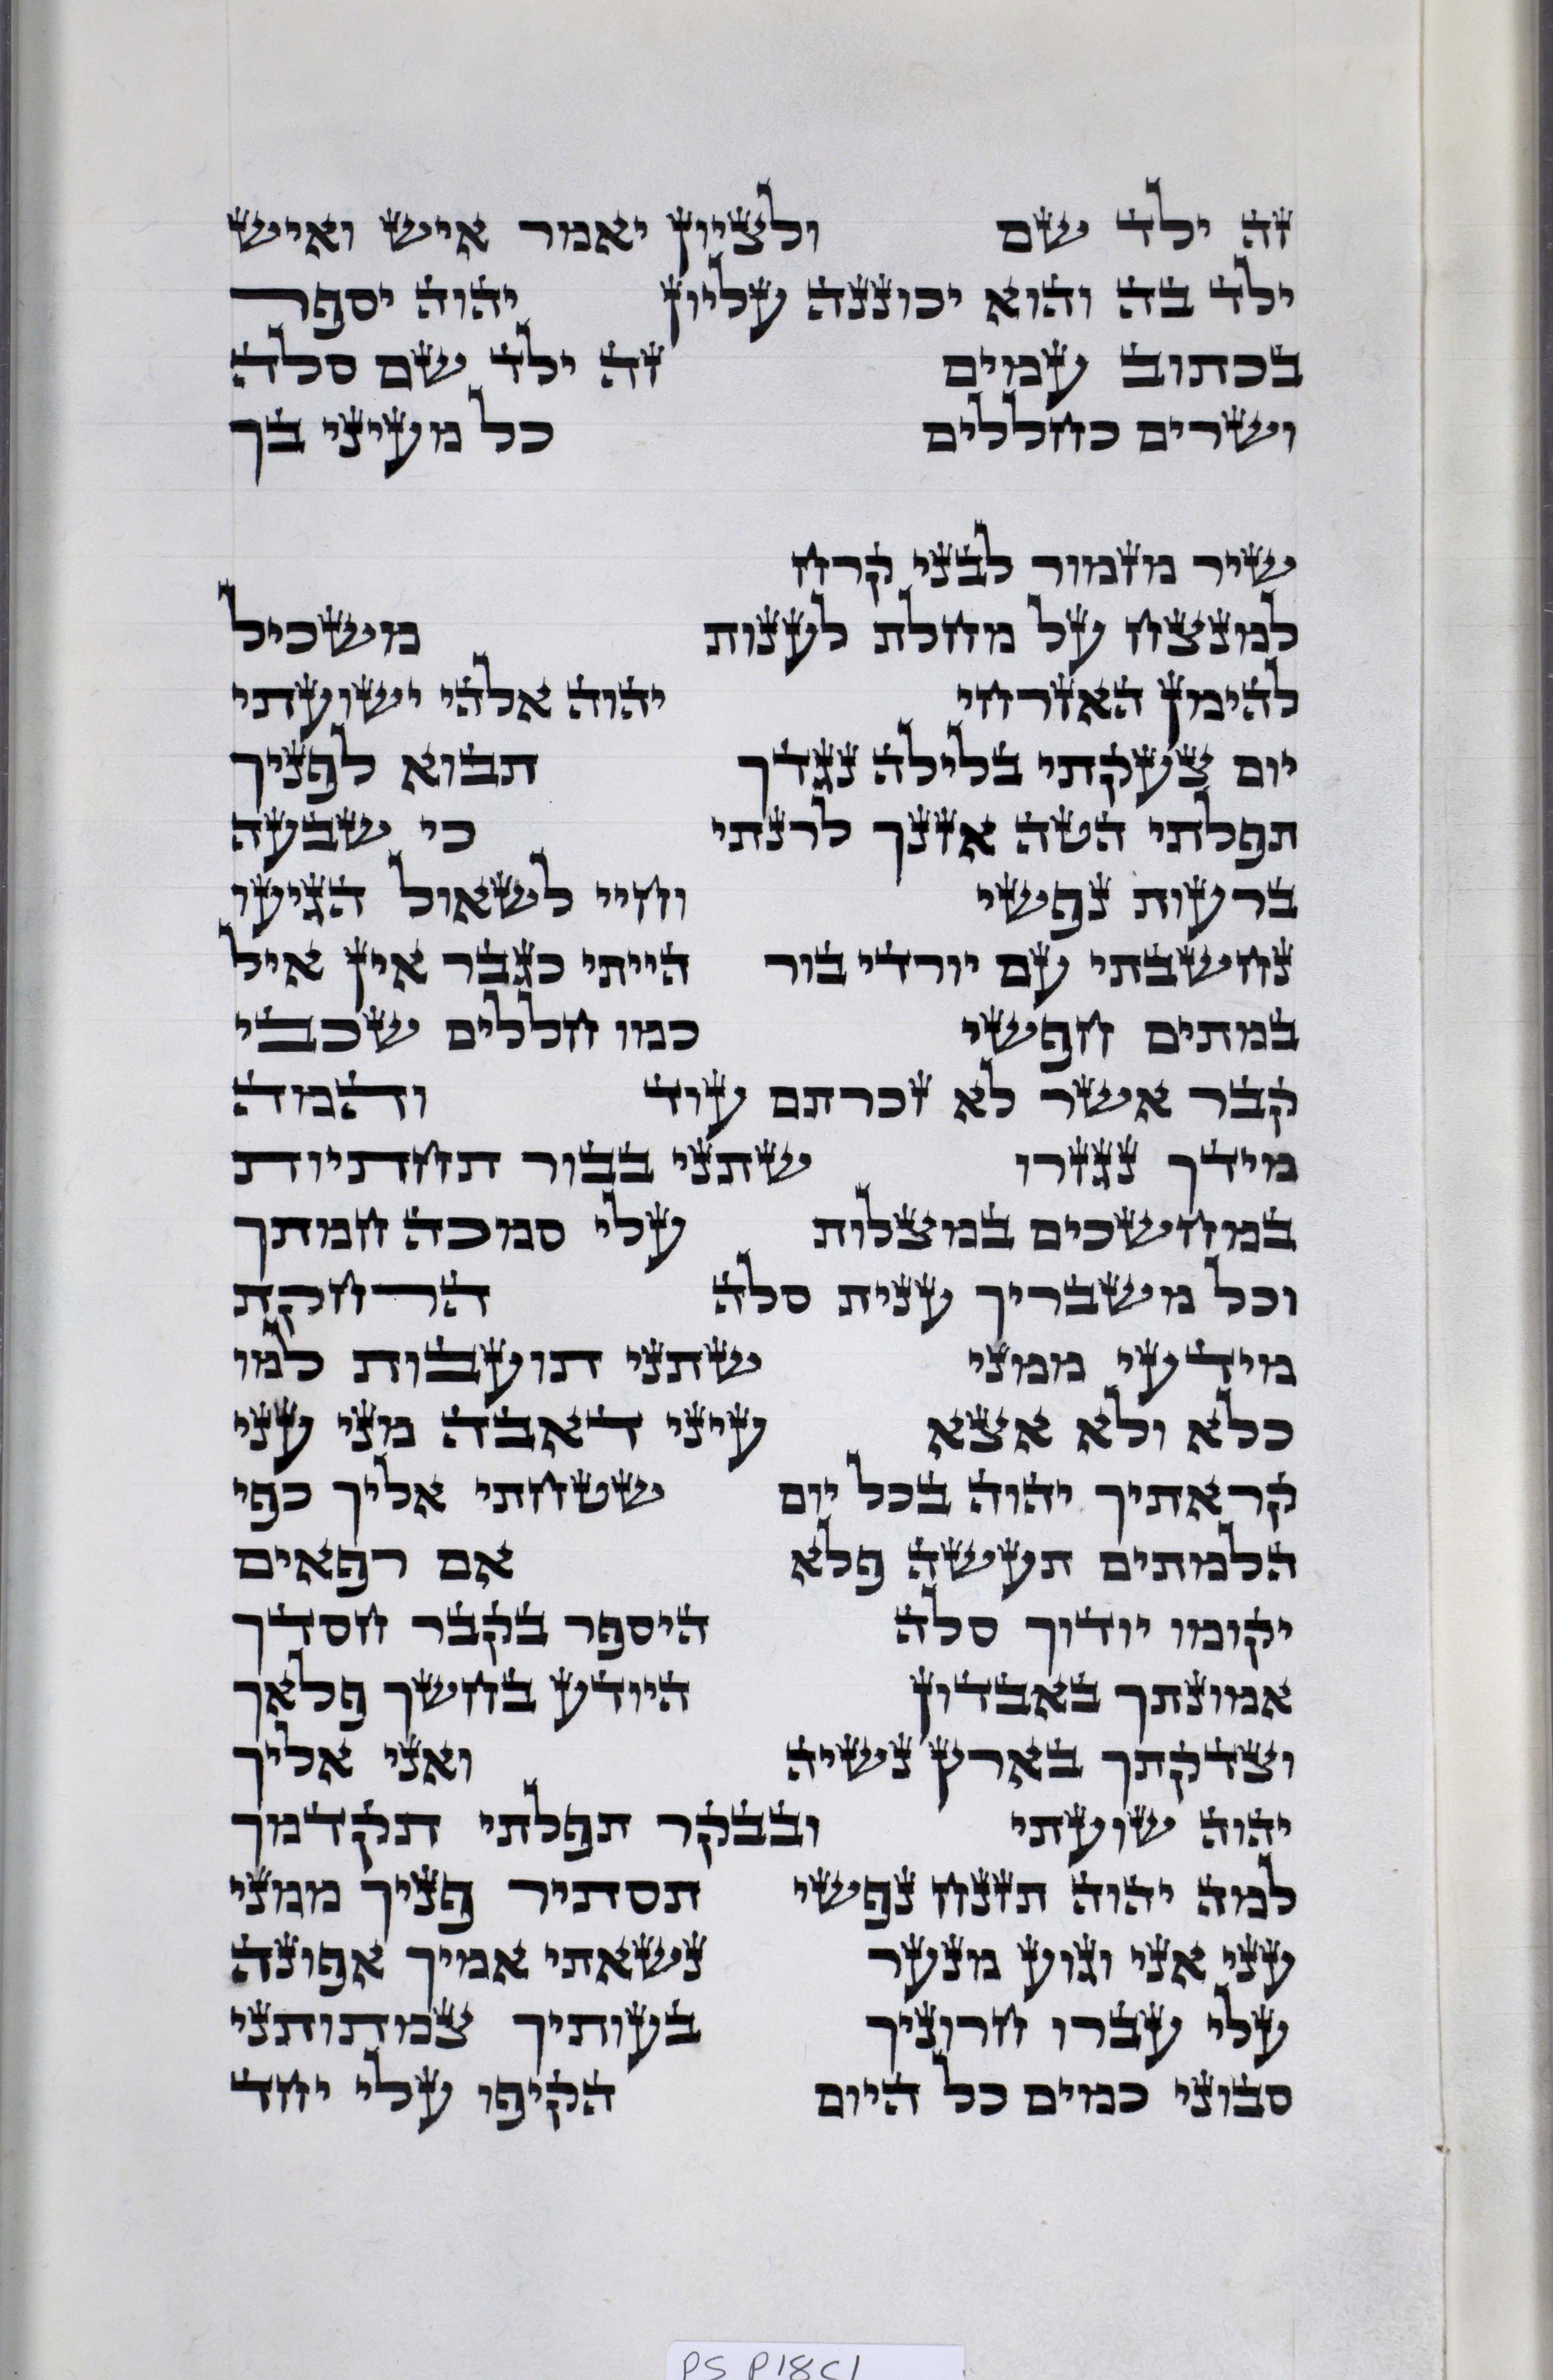 זה ילד שם ולציון יאמר איש ואיש
ילד בה והוא יכוננה עליון יהוה יספר
בכתוב עמים זה ילד שם סלה
ושרים כחללים כל מעיני בך
שיר מזמור לבני קרח
למנצח על מחלת לענות משכיל
להימן האזרחי יהוה אלהי ישועתי
יום צעקתי בלילה נגדך תבוא לפניך
תפלתי הטה אזנך לרנתי כי שבעה
ברעות נפשי וחיי לשאול הגיעו
נחשבתי עם יורדי בור הייתי כגבר אין איל
במתים חפשי כמו חללים שכבי
קבר אשר לא זכרתם עוד והמה
מידך נגזרו שתני בבור תחתיות
במחשכים במצלות עלי סמכה חמתך
וכל משבריך ענית סלה הרחקת
מידעי ממני שתני תועבות למו
כלא ולא אצא עיני דאבה מני עני
קראתיך יהוה בכל יום שטחתי אליך כפי
הלמתים תעשה פלא אם רפאים
יקומו יודוך סלה היספר בקבר חסדך
אמונתך באבדון היודע בחשך פלאך
וצדקתך בארץ נשיה ואני אליך
יהוה שועתי ובבקר תפלתי תקדמך
למה יהוה תזנח נפשי תסתיר פניך ממני
עני אני וגוע מנער נשאתי אמיך אפונה
עלי עברו חרוניך בעותיך צמתותני
סבוני כמים כל היום הקיפו עלי יחד
PS P18C1